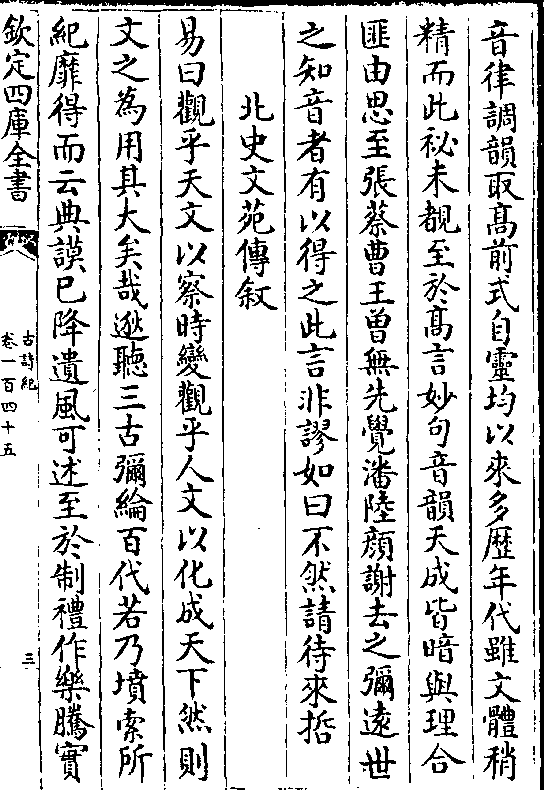 音律調韻取髙前式自靈均以來多歴年代雖文體稍
精而此祕未覩至於髙言妙句音韻天成皆暗與理合
匪由思至張蔡曹王曽無先覺潘陸顔謝去之彌逺世
之知音者有以得之此言非謬如曰不然請待來哲
北史文苑傳叙
易曰觀乎天文以察時變觀乎人文以化成天下然則
文之為用其大矣哉逖聽三古彌綸百代若乃墳索所
紀靡得而云典謨已降遺風可述至於制禮作樂騰實
欽定四庫全書
古詩紀
卷一百四十五
三